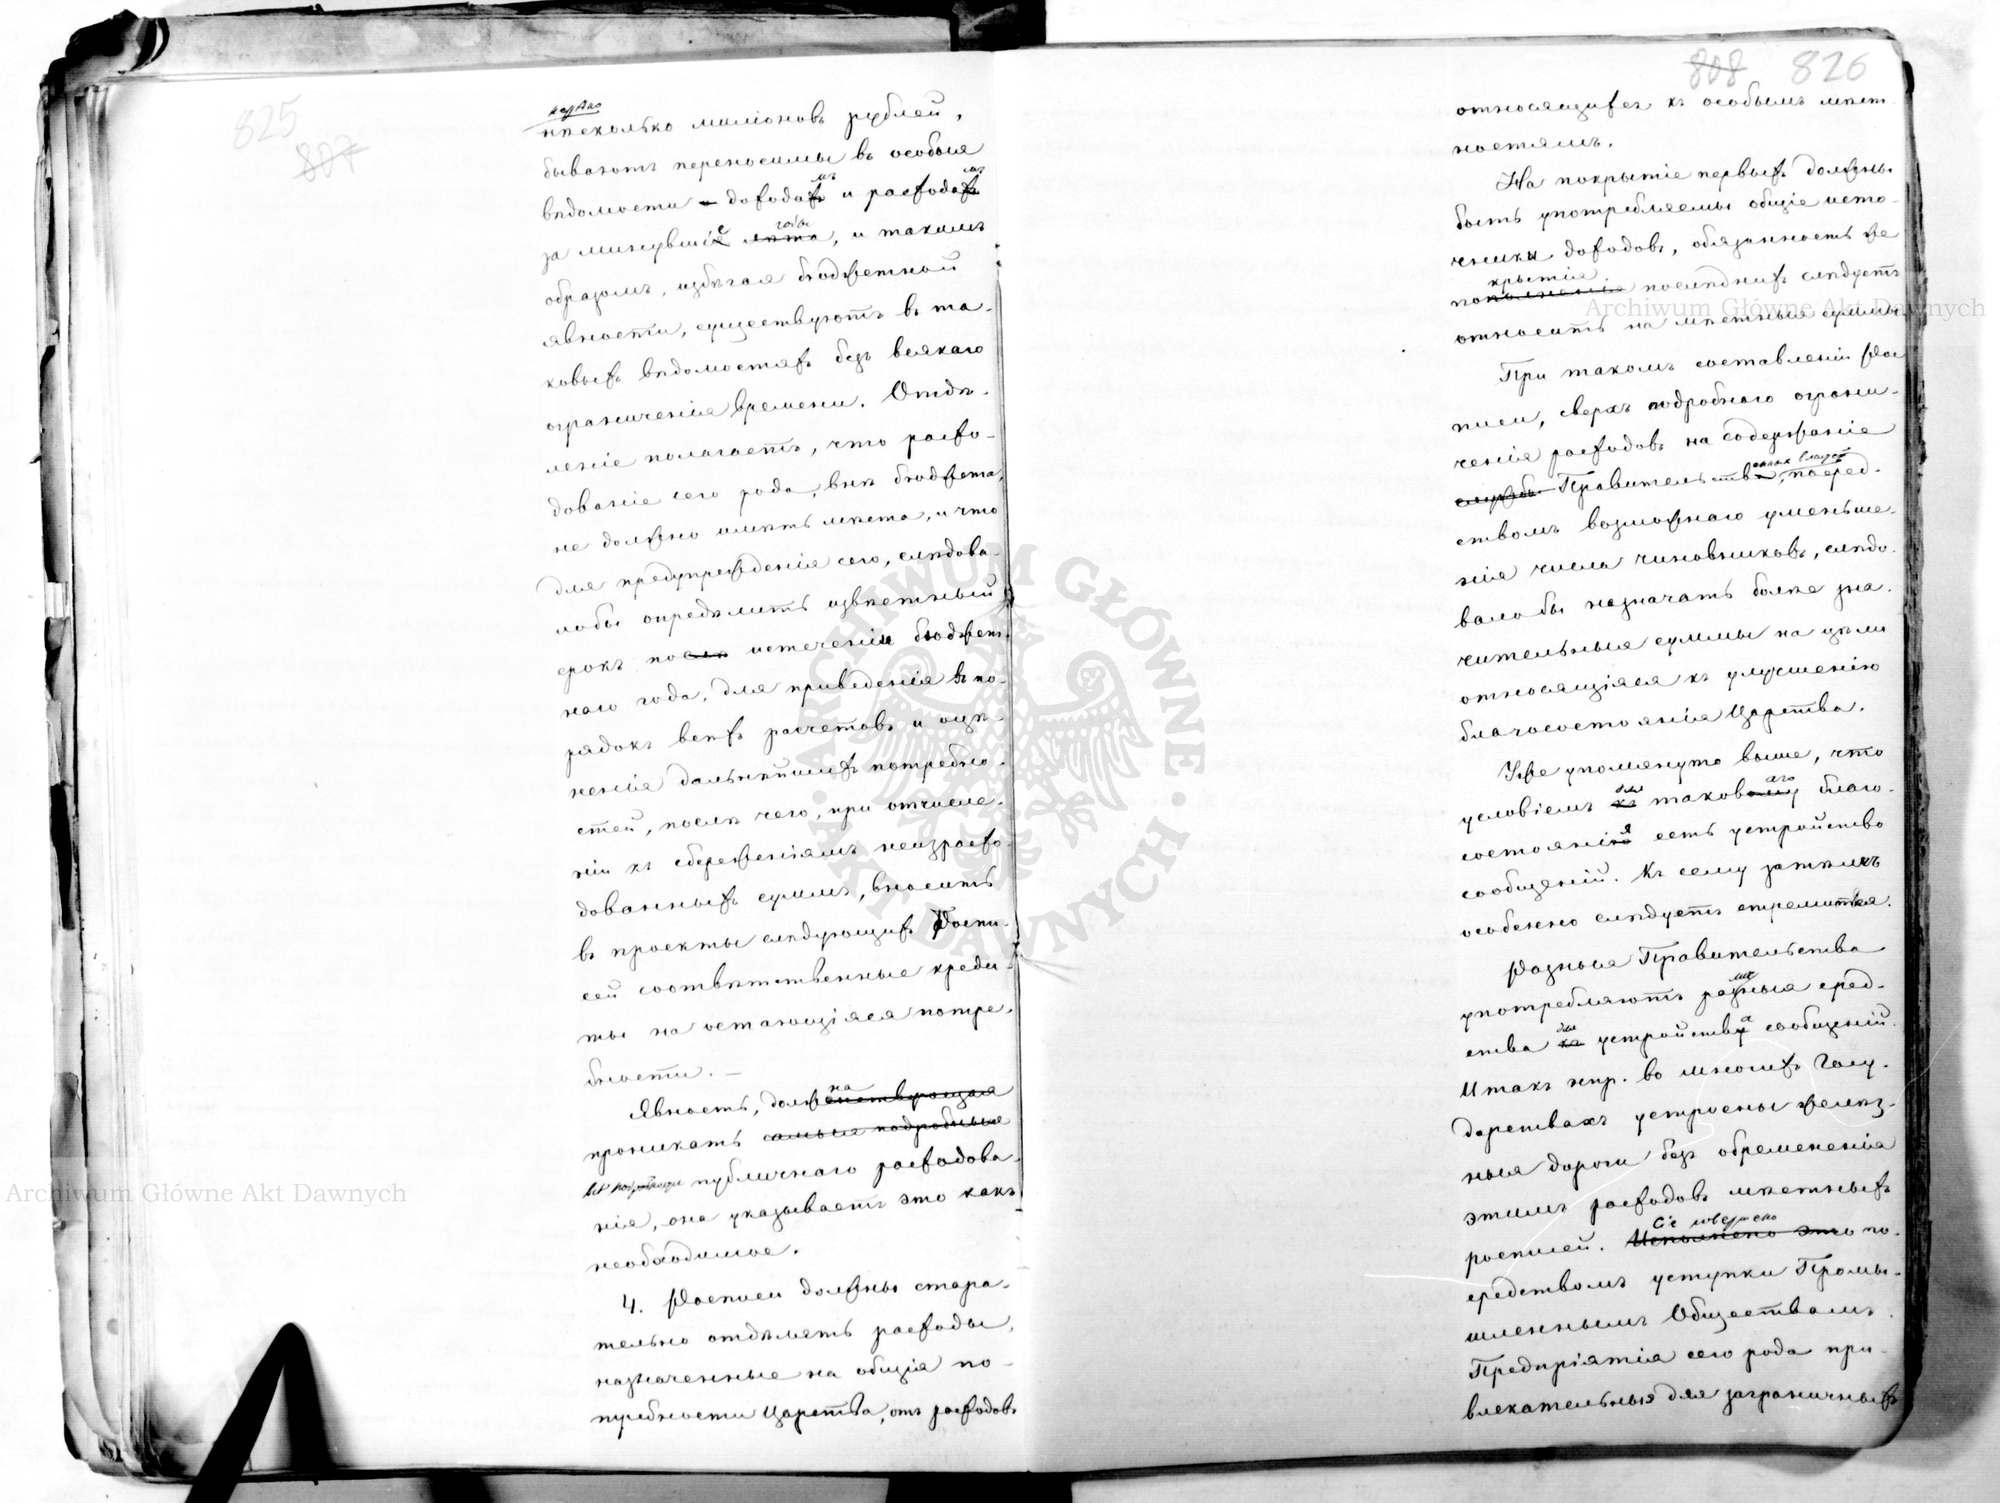 825
807
нѣсколько миліоновъ рублей,
бываютъ переносимы въ особыя
вѣдомости доходамъ и расходамъ
за минувшіе годы, и такимъ
образомъ, избѣгая бюджетной
явности, существуютъ въ та-
ковыхъ вѣдомостяхъ безъ всякаго
ограниченія времени. Отдѣ-
леніе полагаетъ, что расхо-
дованіе сего рода, внѣ бюджета,
не должно имѣть мѣста, и что
для предупрежденія сего, слѣдова-
ло бы опредѣлить извѣстный
срокъ по истеченіи бюджет-
наго года, для приведенія въ по-
рядокъ всѣхъ расчетовъ и оцѣ-
ненія дальнѣйшихъ потребно-
стей, послѣ чего, при отчисле-
ніи къ сбереженіямъ неизрасхо-
дованныхъ суммъ, вносить
въ проекты слѣдующихъ Роспи-
сей соотвѣтственные креди-
ты на остающіяся потре-
бности. —
Явность, должна
проникать
всѣ подробности публичнаго расходова-
нія, она указываетъ это какъ
необходимое.
4. Росписи должны стара-
тельно отдѣлять расходы,
назначенные на общія по-
требности Царства, отъ расходовъ
808 826
относящихся къ особымъ мѣст-
ностямъ.
На покрытіе первыхъ должны
быть употребляемы общіе исто-
чники доходовъ, обязанность же
покрытія послѣднихъ слѣдуетъ
относить на мѣстныя суммы
При такомъ составленіи Рос
писи, сверхъ подробнаго ограни-
ченія расходовъ на содержаніе
службы Правительственныхъ властей, посред-
ствомъ возможнаго уменьше-
нія числа чиновниковъ, слѣдо-
вало бы назначать болѣе зна-
чительныя суммы на цѣли
относящіяся къ улучшенію
благосостоянія Царства.
Уже упомянуто выше, что
условіемъ для таковаго благо-
состоянія есть устройство
сообщеній. Къ сему затѣмъ
особенно слѣдуетъ стремиться.
Разныя Правительства
употребляютъ разныя сред-
ства для устройства сообщеній.
И такъ нпр. во многихъ Госу-
дарствахъ устроены желѣз-
ныя дороги безъ обремененія
этимъ расходовъ мѣстныхъ
росписей. Сіе совершено по-
средствомъ уступки Промы-
шленнымъ Обществамъ.
Предпріятія сего рода при-
влекательныя для заграничныхъ
Archiwum Główne Akt Dawnych
Archiwum Główne Akt Dawnych
ARCHIWUM GŁÓWNE AKT DAWNYCH